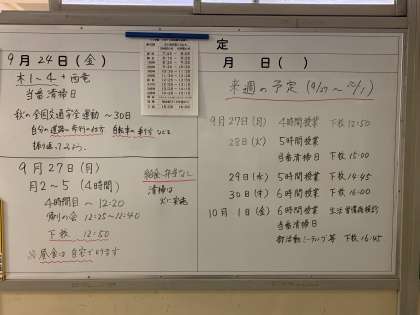 9月24日(金)
木1～4+西竜
当番清掃日
秋の全国交通安全運動 ～30日
自分の道路の歩行の仕方 自転車の乗り方 などを
振り返ってみよう。
9月27日(月)
月2～5(4時間)
4時間目～12:20
帰りの会 12:25～12:40
下校 12:50
※昼食は自宅でとります
給食・弁当なし
清掃は
定
月 日( )
来週の予定(9/27～10/1)
9月27日(月) 4時間授業 下校12:50
28日(火) 5時間授業
当番清掃日 下校15:00
29日(水) 5時間授業 下校14:45
30日(木) 6時間授業 下校16:00
10月1日(金) 6時間授業
当番清掃日
部活動ミーティング等 下校16:45